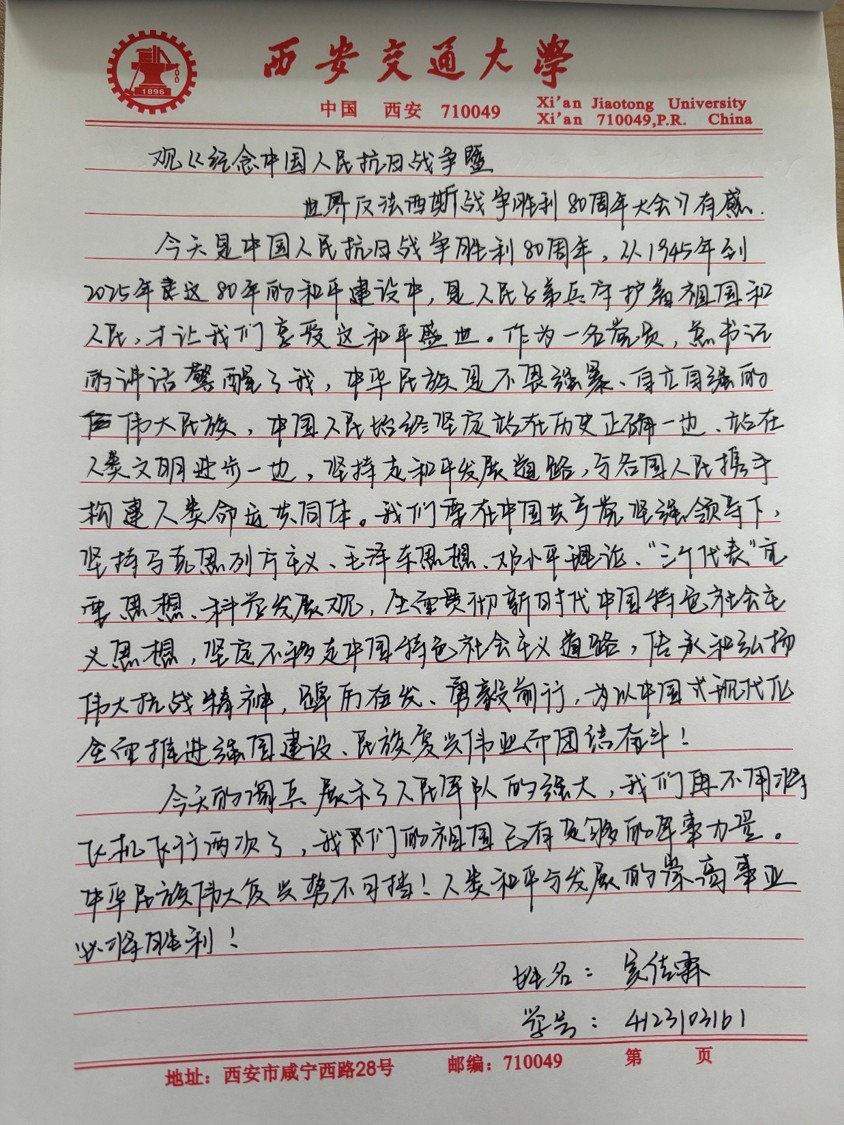 1896
西安交通大学
中国 西安 710049
Xi'an Jiaotong University
Xi'an 710049,P.R. China
观《纪念中国人民抗日战争暨
世界反法西斯战争胜利80周年大会》有感.
今天是中国人民抗日战争胜利80周年,从1945年到
2025年 这80年的和平建设中,是人民子弟兵守护着祖国和
人民,才让我们享受这和平盛世。作为一名党员,总书记
的讲话警醒了我,中华民族是不畏强暴、自立自强的
伟大民族,中国人民始终坚定站在历史正确一边、站在
人类文明进步一边,坚持走和平发展道路,与各国人民携手
构建人类命运共同体。我们要在中国共产党坚强领导下,
坚持马克思列宁主义、毛泽东思想、邓小平理论、"三个代表"重
要思想、科学发展观,全面贯彻新时代中国特色社会主
义思想,坚定不移走中国特色社会主义道路,传承和弘扬
伟大抗战精神,踔厉奋发、勇毅前行,为以中国式现代化
全面推进强国建设、民族复兴伟业而团结奋斗!
今天的阅兵展示了人民军队的强大,我们再不用将
飞机飞行两次了,我们的祖国已有足够的军事力量。
中华民族伟大复兴势不可挡!人类和平与发展的崇高事业
必将胜利!
姓名: 佳霖
学号: 4123103161
地址:西安市咸宁西路28号 邮编:710049 第 页